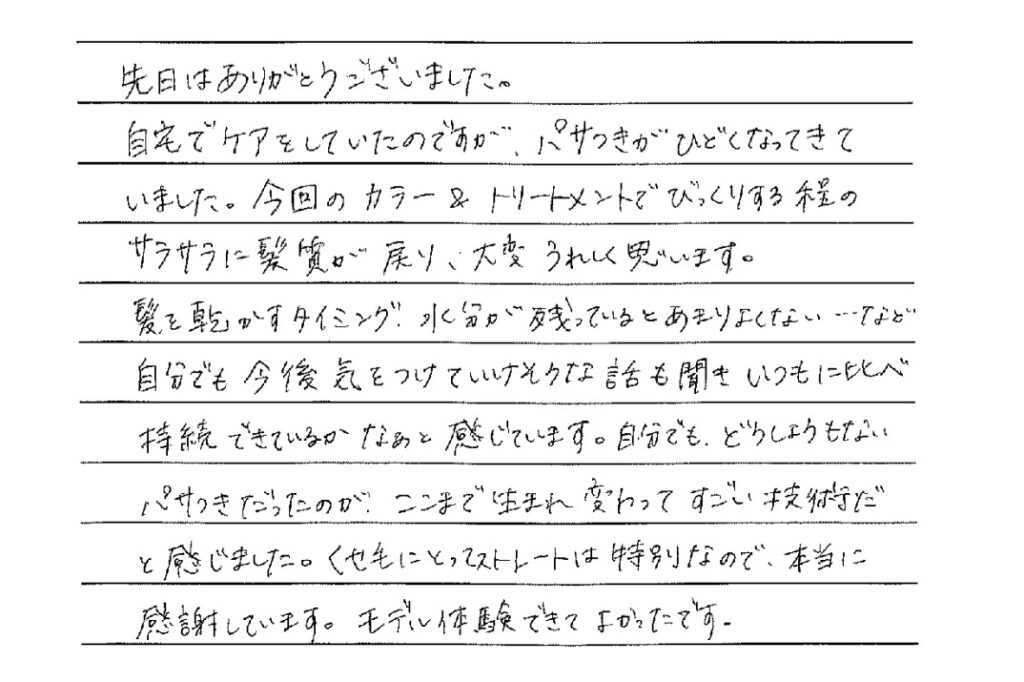 先日はありがとうございました。
自宅でケアをしていたのですが、パサつきがひどくなってきて
いました。今回のカラー & トリートメントでびっくりする程の
サラサラに髪質が戻り、大変うれしく思います。
髪を乾かすタイミング、水分が残っているとあまりよくない…など
自分でも今後気をつけていけそうな話も聞きいつもに比べ
持続できているかなぁと感じています。自分でも、どうしようもない
パサつきだったのが、ここまで生まれ変わってすごい技術だ
と感じました。くせ毛にとってストレートは特別なので、本当に
感謝しています。モデル体験できてよかったです。